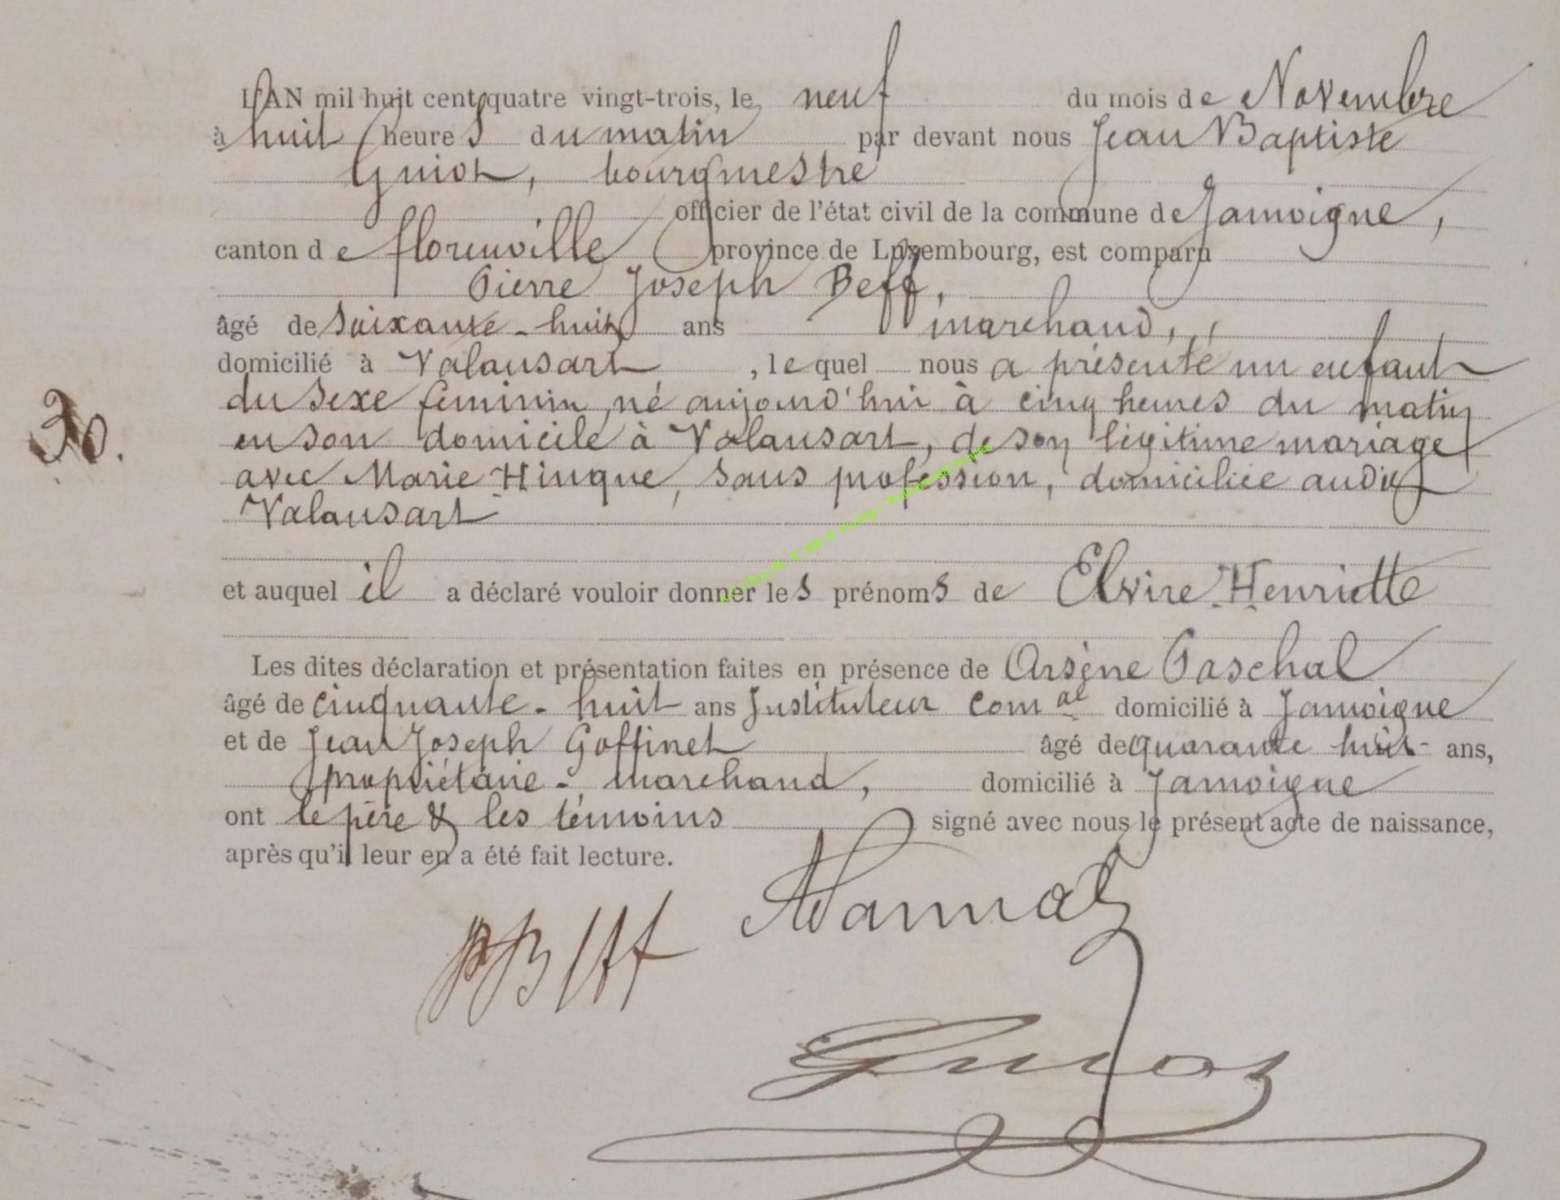 L'AN mil huit cent quatre vingt-trois, le neuf du mois de Novembre
à huit heures du matin par devant nous Jean Baptiste
Guiot, bourgmestre
officier de l'état civil de la commune de Jamoigne,
canton de florenville province de Luxembourg, est comparu
Pierre Joseph Beff,
âgé de soixante-huit ans marchand,
domicilié à Valansart, lequel nous a présenté un enfant
du sexe féminin, né aujourd'hui à cinq heures du matin
en son domicile à Valansart, de son légitime mariage
avec Marie Hinque, sans profession, domiciliée audit
Valansart
30.
et auquel il a déclaré vouloir donner les prénoms de Elvire-Henriette
Les dites déclaration et présentation faites en présence de Arsène Paschal
âgé de cinquante-huit ans Instituteur com.al domicilié à Jamoigne
et de Jean Joseph Goffinet âgé de quarante huit ans,
propriétaire-marchand, domicilié à Jamoigne
ont le père & les témoins signé avec nous le présent acte de naissance,
après qu'il leur en a été fait lecture.
Guiot